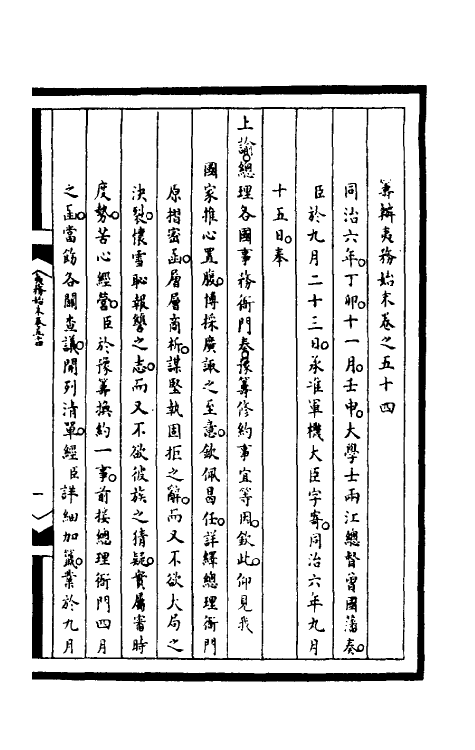 籌辦夷務始末卷之五十四
同治六年丁卯十一月壬申大學士兩江總督曾國藩奏
臣於九月二十三日承准軍機大臣字寄同治六年九月
十五日奉
上諭總理各國事務衙門奏豫籌修約事宜等因欽此仰見我
國家推心置腹博採廣諏之至意欽佩昌任詳繹總理衙門
原摺密函層層商析謀堅執固拒之辭而又不欲大局之
決裂懷雪恥報讐之志而又不欲彼族之猜疑實屬審時
度勢苦心經營臣於豫籌換約一事前接總理衙門四月
之函當飭各關查議開列清單經臣詳細加籤業於九月
夷務始末卷五十四
一